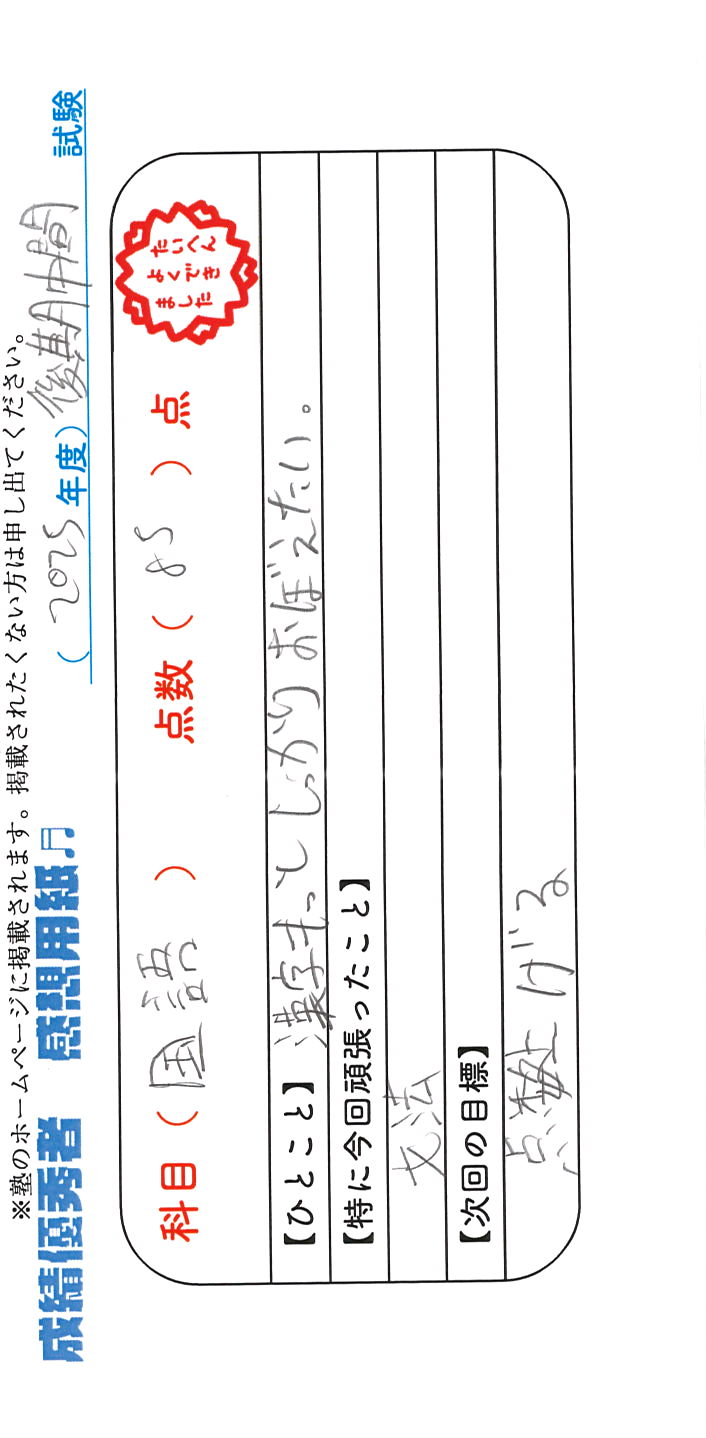 ※塾のホームページに掲載されます。掲載されたくない方は申し出てください。
成績優秀者 感想用紙♬ (2025年度)後期中間 試験
科目(国語) 点数(85)点
たいへん
よくでき
ました
【ひとこと】漢字もってしっかりおぼえたい。
【特に今回頑張ったこと】
文法
【次回の目標】
点数上げる